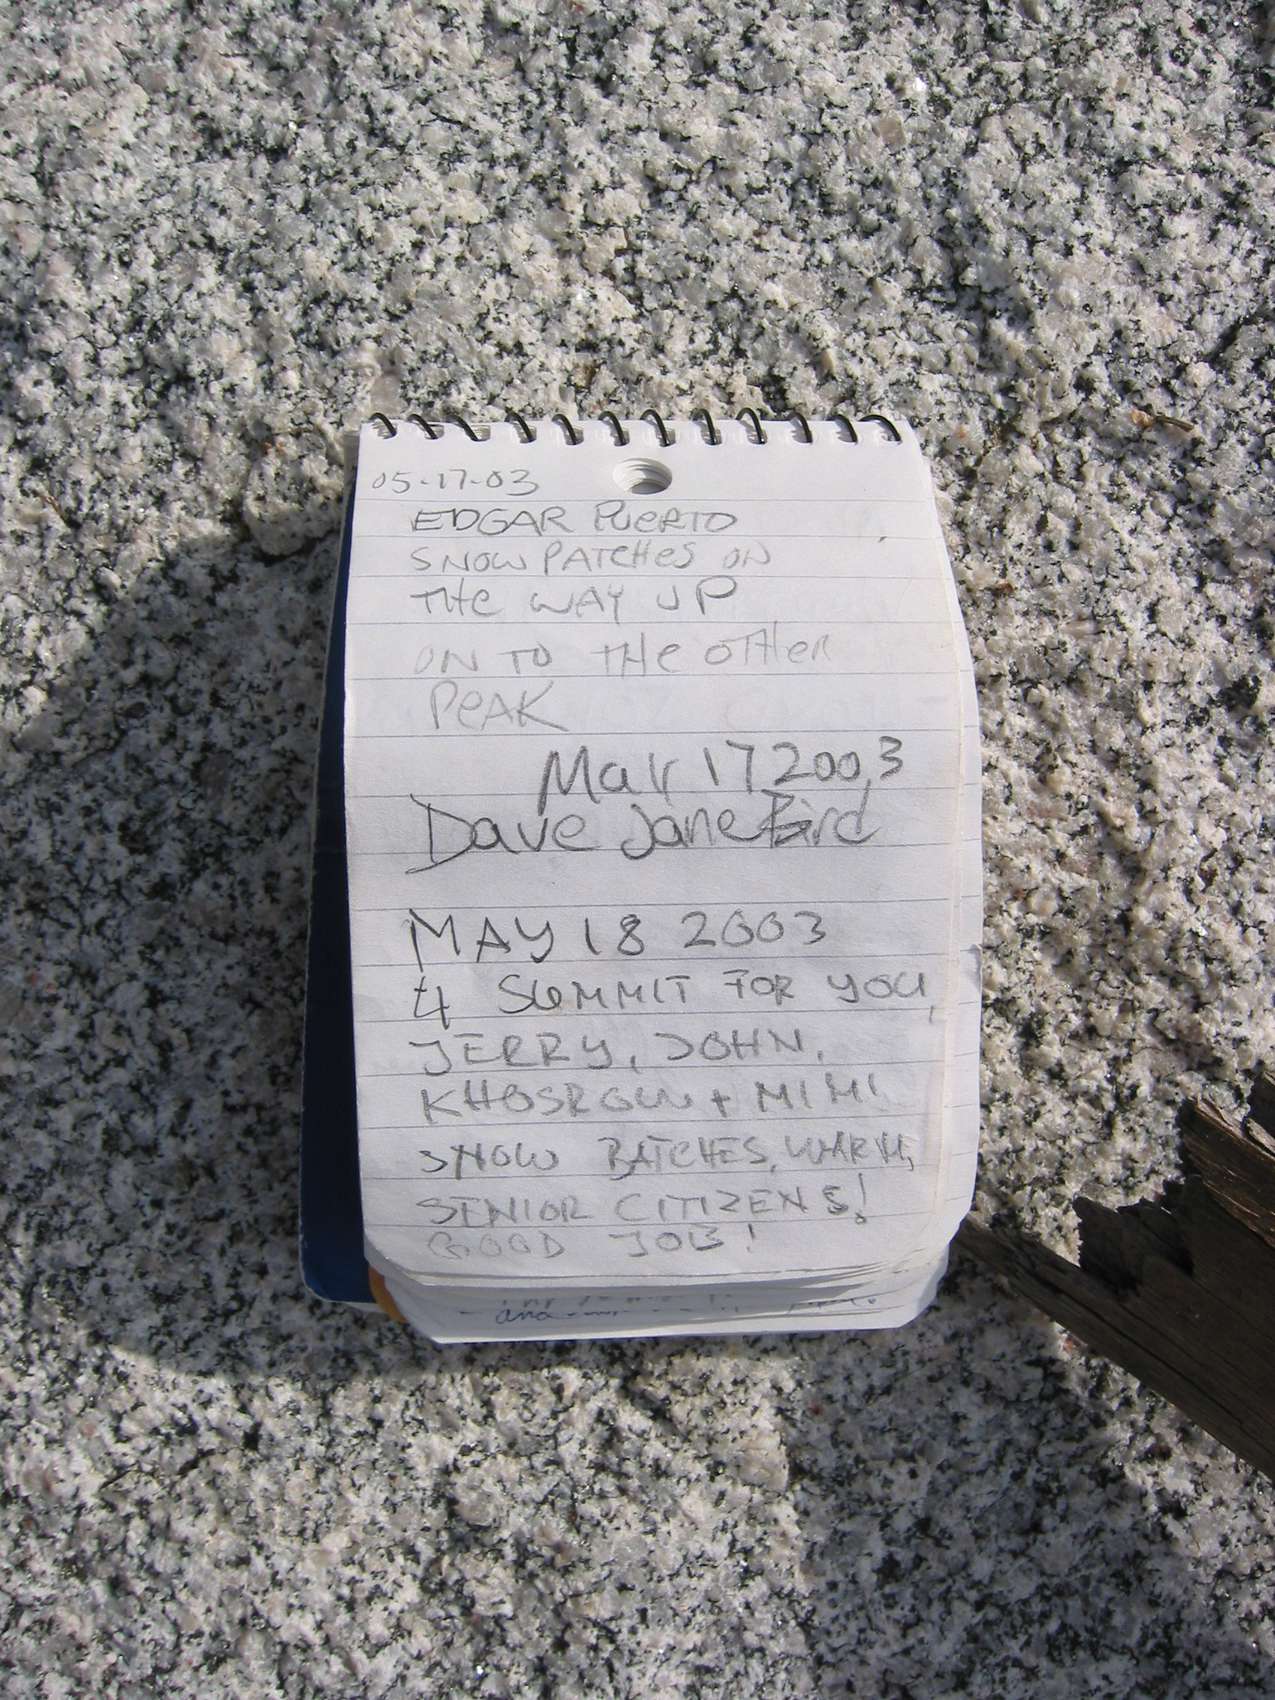 05-17-03
EDGAR PUERTO
SNOW PATCHES ON
THE WAY UP
ON TO THE OTHER
PEAK
Mar 17 2003
Dave Jane Bird
MAY 18 2003
4 SUMMIT FOR YOU,
JERRY, JOHN,
KHOSROW + MIMI
SNOW BATCHES, WARM,
SENIOR CITIZENS!
GOOD JOB!
and